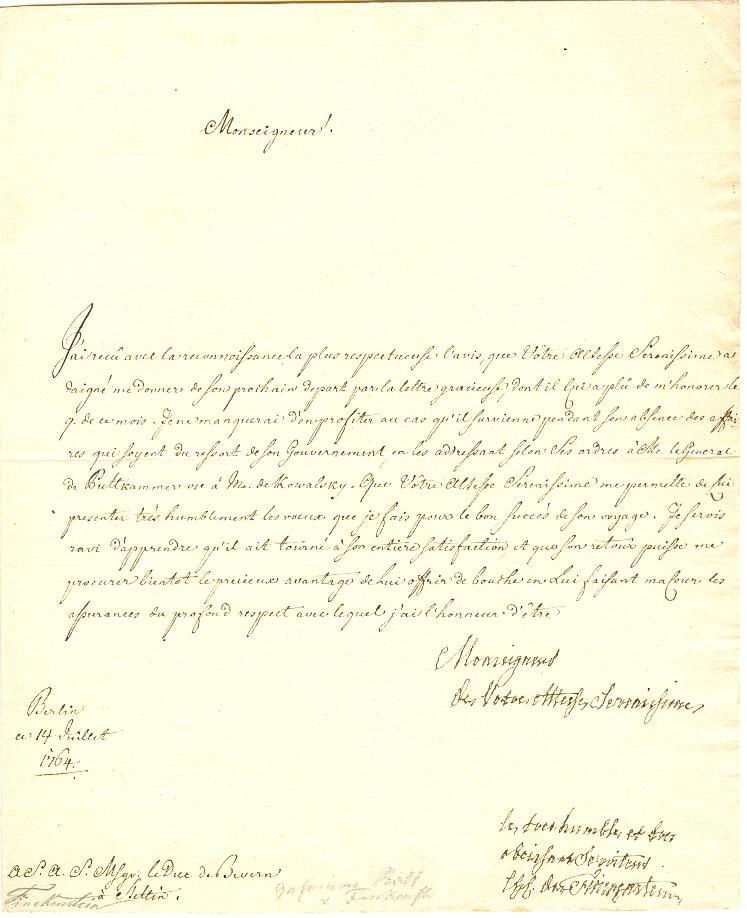 Monseigneur!
J'ai reçû avec la reconnoissance la plus respectueuse l'avis, que Vôtre Altesse Serenissime a
daigné me donner de son prochain depart par la lettre gracieuse, dont il Lui a plû de m'honorer le
9. de ce mois. Je ne manquerai d'en profiter au cas qu'il survienne pendant son absence des affai-
res qui soyent du ressort de son Gouvernement en les addressant selon Ses ordres à Mr. le General
de Puttkammer à Mr. de Kowalsky. Que Vôtre Altesse Serenissime me permette de Lui
presenter très humblement les voeux que je fais pour le bon succés de son voyage. Je serois
ravi d'apprendre qu'il ait tourné à son entière satisfaction et que son retour puisse me
procurer bientot le precieux avantage de Lui offrir de bouche en Lui faisant ma Cour les
assurances du profond respect avec lequel j'ai l'honneur d'être
Monseigneur
de Votre Altesse Serenissime,
Berlin
ce 14 Juillet
1764.
le tres humble et tres
obeissant Serviteur
a S. A. S. Msgr. le Duc de Bevern
à Stettin.
Finckenstein